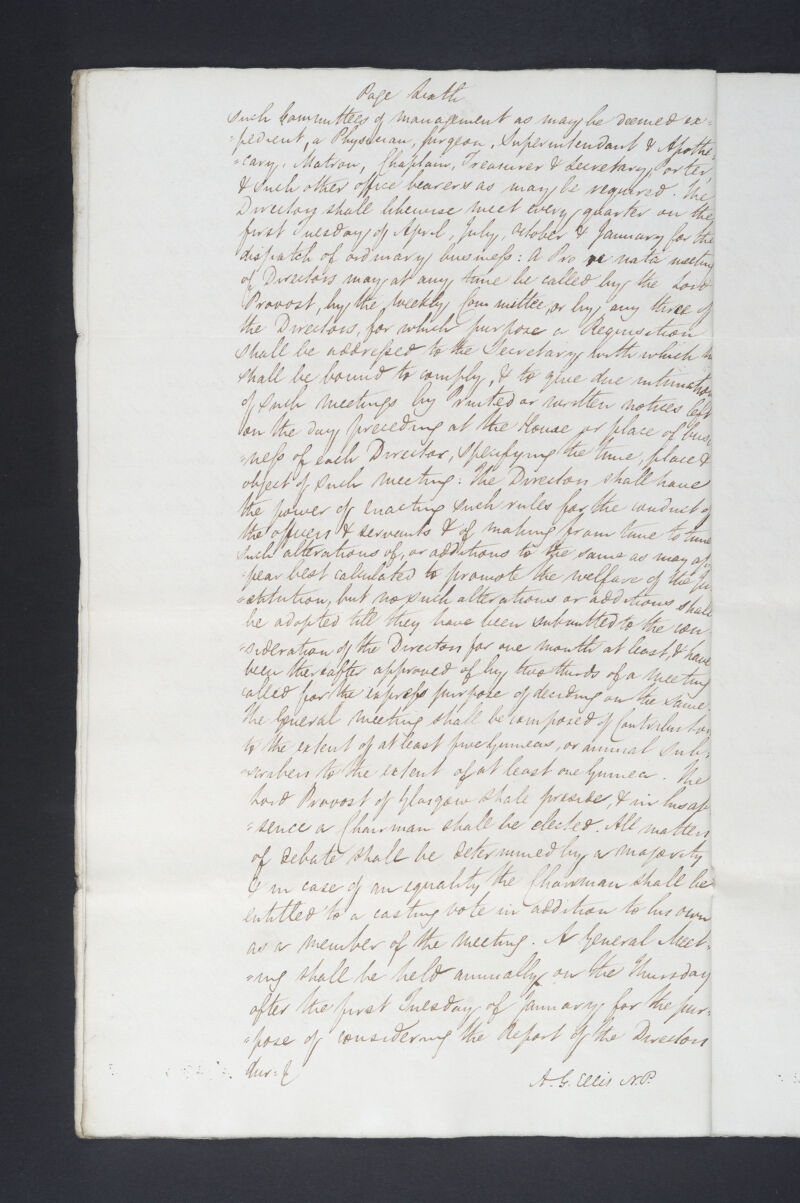 Page Sixth
such Committees of management as may be deemed ex-
-pedient, a Physician, Surgeon, Superintendant & Apothe-
-cary, Matron, Chaplain, Treasurer & Secretary, Porter,
& such other office bearers as may be required. The
Directors shall likewise meet every quarter on the
first Tuesday of April, July, October & January for the
dispatch of ordinary business: A Pro re nata meeting
of Directors may at any time be called by the Lord
Provost, by the Weekly Committee, or by any three of
the Directors, for which purpose a Requisition
shall be addressed to the Secretary with which he
shall be bound to comply, & to give due intimation
of such meetings by Printed or written notices left
on the day preceding at the House or place of busi
-ness of each Director, specifying the time, place &
object of such meeting: The Directors shall have
the power of enacting such rules for the conduct of
the officers & servants & of making from time to time
such alterations of, or additions to the same as may ap
-pear best calculated to promote the welfare of the In
-stitution, but no such alterations or additions shall
be adopted till they have been submitted to the con
-sideration of the Directors for one month at least, & have
been thereafter approved of by two thirds of a meeting
called for the express purpose of deciding on the same.
The General Meeting shall be composed of Contributors
to the extent of at least five Guineas, or annual sub-
-scribers to the extent of at least one Guinea. The
Lord Provost of Glasgow shall preside, & in his ab
-sence a Chairman shall be elected. All matters
of debate shall be determined by a majority
& in case of an equality the Chairman shall be
entitled to a casting vote in addition to his own
as a member of the meeting. A General Meet-
-ing shall be held annually on the Thursday
after the first Tuesday of January for the pur-
-pose of considering the Report of the Directors
A. G. Ellis N.P.